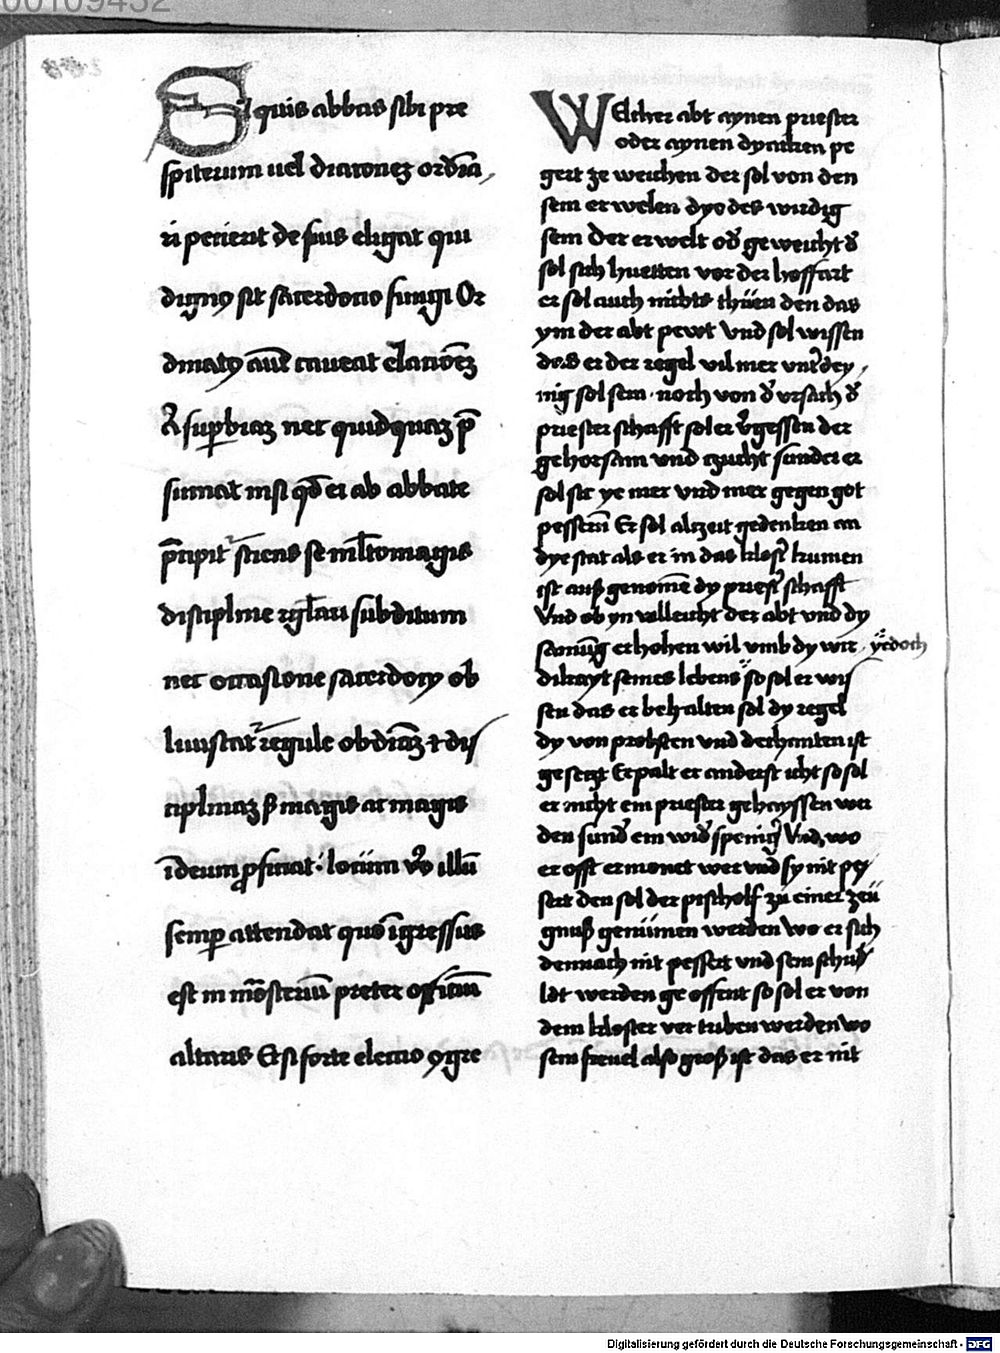 00109432
Si quis abbas sibi pre
spiterum uel diaconez ordīa,
ri pecierit de suis eligat qui
dignꝰ sit sacerdocio fungi Or
dinatꝰ aūt caueat elacionēz
A suꝑbiaz nec quidquaz p̄
sumat nisi qd̄ ei ab abbate
p̄cipit᷑ sciens se ml̄tomagis
discipline rgl̄ari subditum
nec occasione sacerdocy ob
liuiscat᷑ regule obediāz ⁊ dis
ciplinaz ß magis ac magis
ī deum ꝓficiat · locūm v̊o illū
semꝑ attendat quo īgressus
est in mōsteriū preter officiū
altaris Et si forte electio ꝯgre
Welcher abt aynen priester
oder aynen dyacken pe
gert ze weichen der sol von den
sein erwelen dyo des wirdig
sein Der erwelt od̄ geweicht d̄
sol sich huetten vor der hoffart
er sol auch nichts thüen den das
ym der abt pewt Vnd sol wissen
das er der regel vil mer vnt̄dey,
nig sol sein · noch von d̄ vrsach d̄
priester schafft sol er v̄gessen der
gehorsam vnd czucht sunder er
sol sic ye mer vnd mer gegen got
pessern̄ Er sol alczeit gedencken an
dye stat als er in das klost̄ kumen
ist auß genomē dy priest̄ schafft
Vnd ob yn villeicht der abt vnd dy
samūg erhohen wil vmb dy wir,
yedoch
dikayt seines lebens so sol er wis
sen das er behalten sol dy regel
dy von probsten vnd dechanten ist
gesetzt Er palt er anderst icht so sol
er nicht ein priester gehayssen wer
den sund̄ ein wid̄ speniḡ Vnd, wo
er offt ermonet wer vnd sy nit pe,
sert den sol der pischolf zu einer zeü
gnuß genümen werden Wo er sich
dennach nit pessert vnd sein schul
ldt werden ge offent so sol er von
dem kloster vertriben werden wo
sein freuel also groß ist das er nit
Digitalisierung gefördert durch die Deutsche Forschungsgemeinschaft - DFG